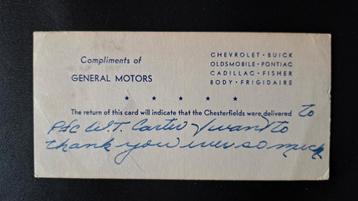 Compliments of
GENERAL MOTORS
CHEVROLET • BUICK
OLDSMOBILE • PONTIAC
CADILLAC • FISHER
BODY • FRIGIDAIRE
★ ★ ★ ★ ★
The return of this card will indicate that the Chesterfields were delivered to
Pfc W.T. Carter I want to
thank you ever so much.